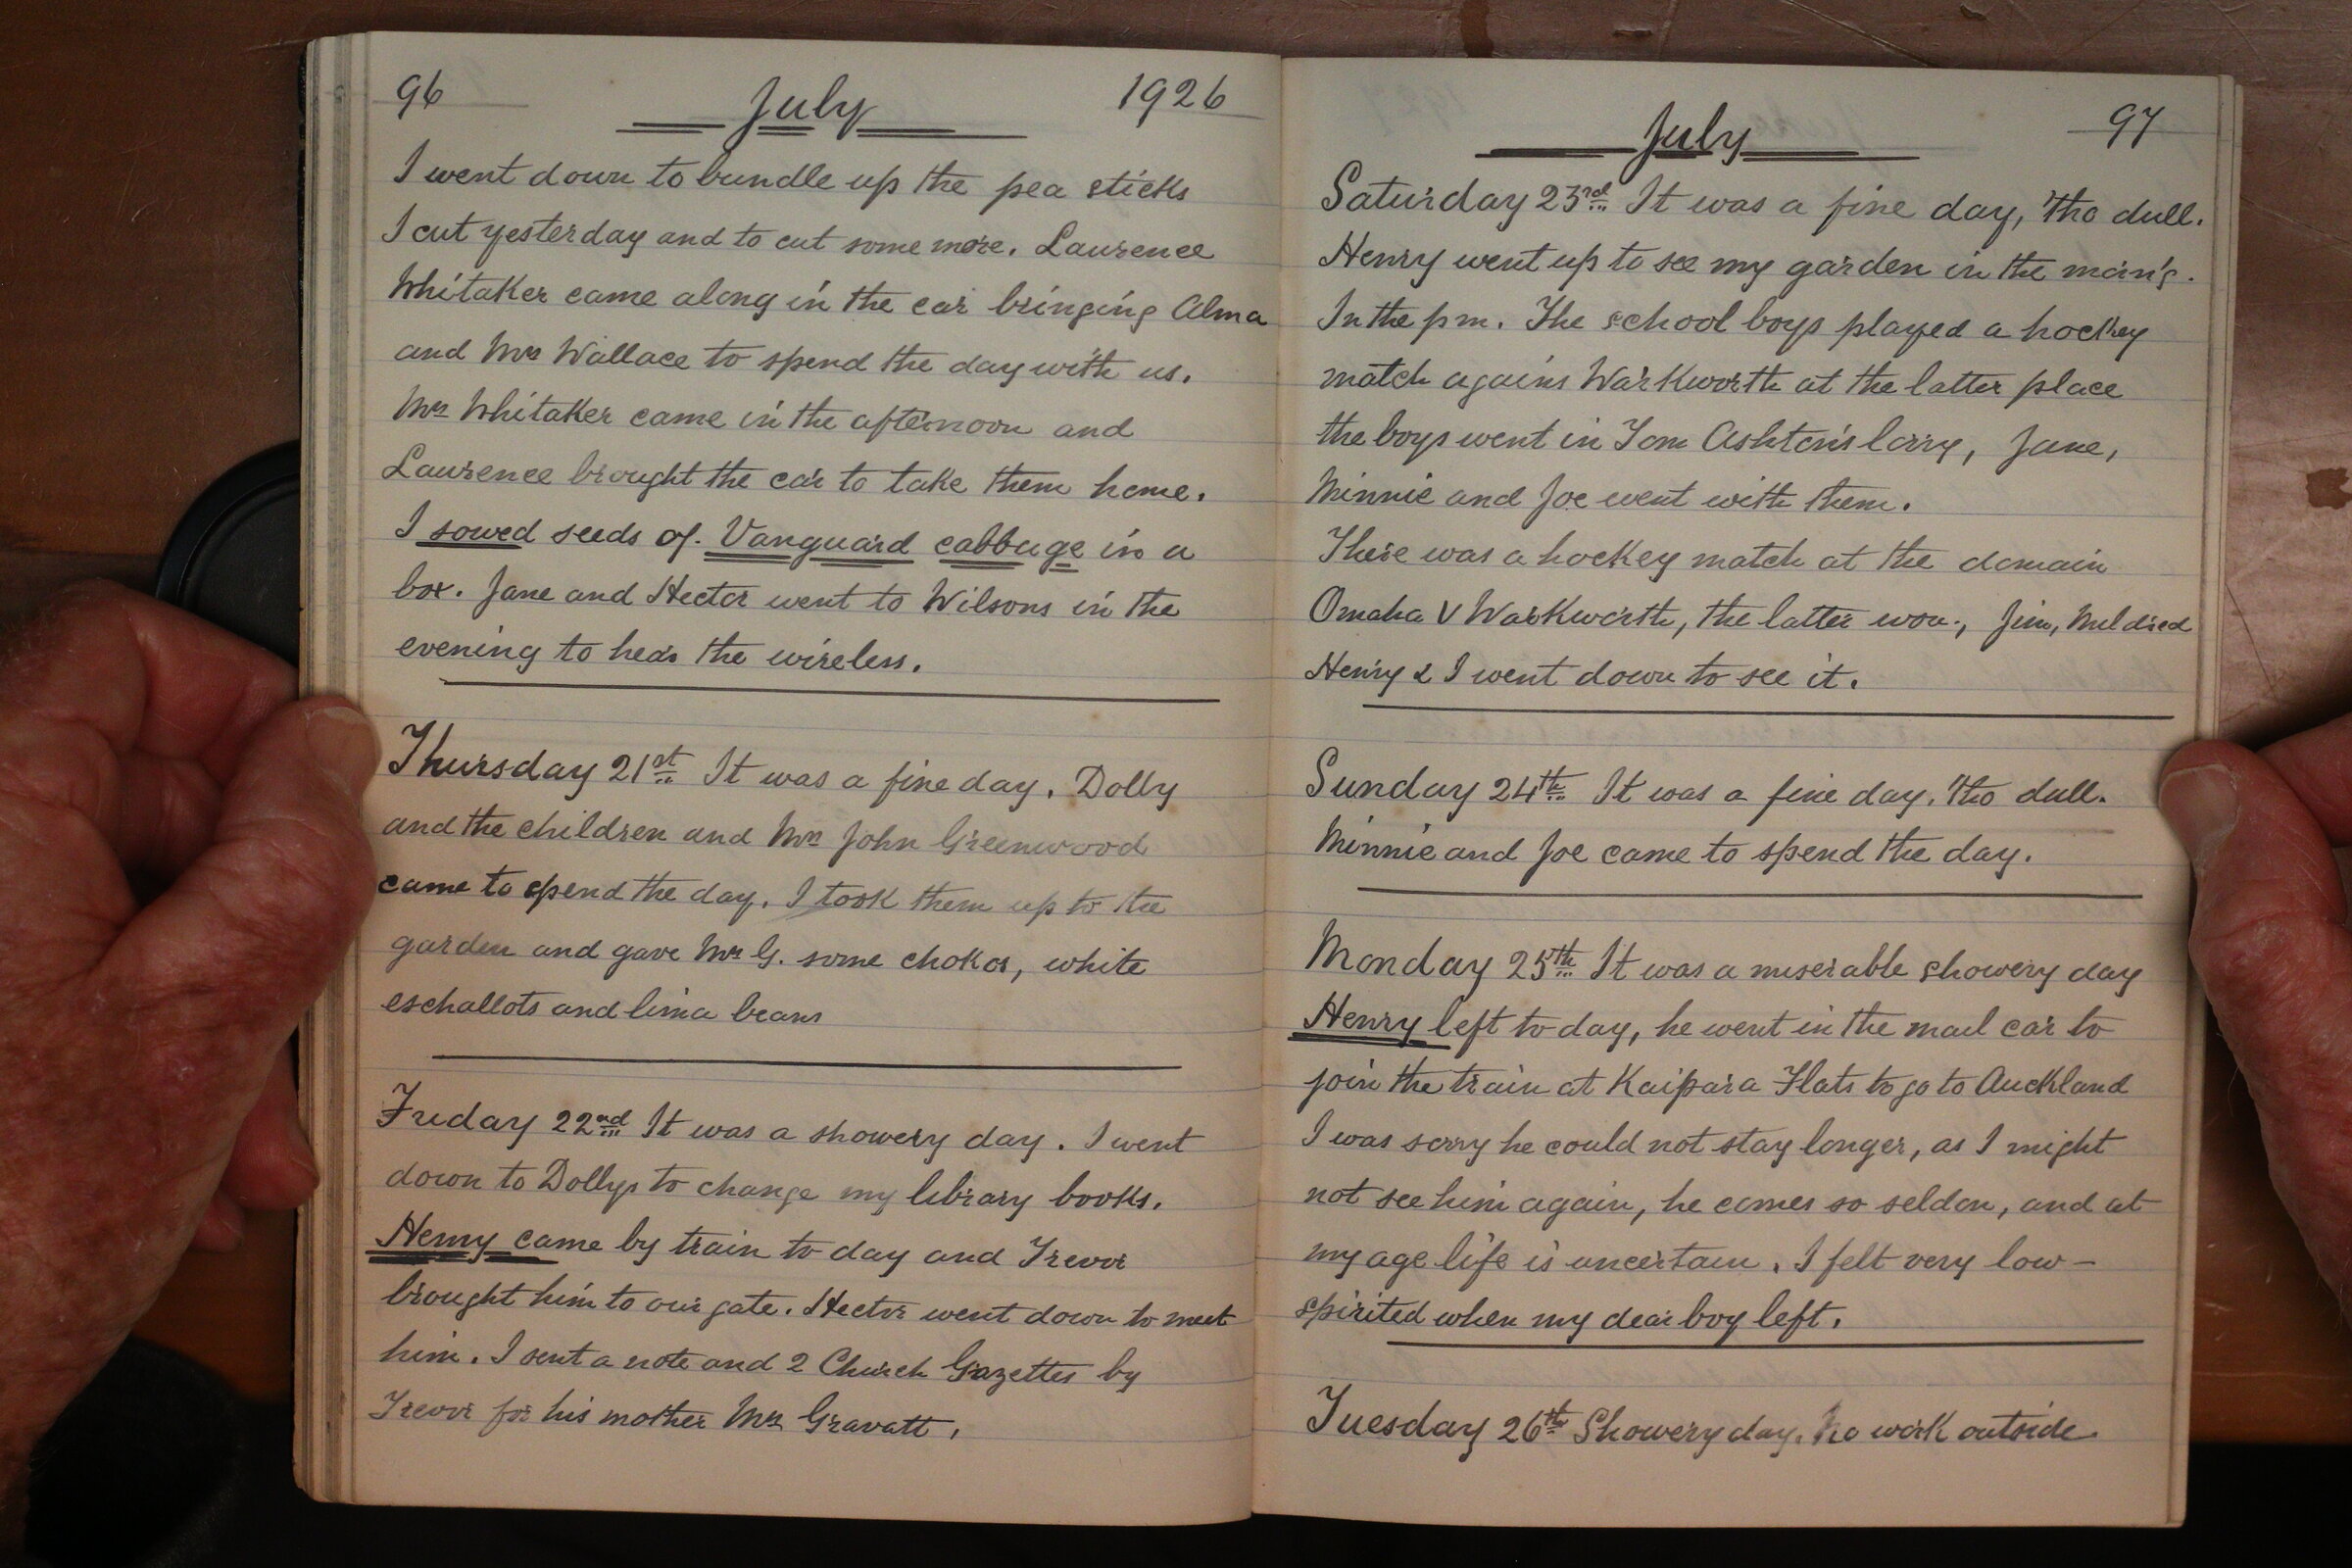 96 July 1926
I went down to bundle up the pea sticks
I cut yesterday and to cut some more. Laurence
Whitaker came along in the car bringing Alma
and Mrs Wallace to spend the day with us.
Mrs Whitaker came in the afternoon and
Laurence brought the car to take them home.
I sowed seeds of Vanguard cabbage in a
box. Jane and Hector went to Wilsons in the
evening to hear the wireless.
Thursday 21st It was a fine day. Dolly
and the children and Mrs John Greenwood
came to spend the day. I took them up to the
garden and gave Mrs G. some chokos, white
eschallots and lima beans
Friday 22nd It was a showery day. I went
down to Dollys to change my library books.
Henry came by train to day and Trevor
brought him to our gate. Hector went down to meet
him. I sent a note and 2 Church Gazettes by
Trevor for his mother Mrs Gravatt.
July 97
Saturday 23rd It was a fine day, tho dull.
Henry went up to see my garden in the morn'g.
In the pm. The school boys played a hockey
match agains Warkworth at the latter place
the boys went in Tom Ashton's lorry, Jane,
Minnie and Joe went with them.
There was a hockey match at the domain
Omaha V Warkworth, the latter won., Jim, Meldred
Henry & I went down to see it.
Sunday 24th It was a fine day, tho dull.
Minnie and Joe came to spend the day.
Monday 25th It was a miserable showery day
Henry left to day, he went in the mail car to
join the train at Kaipara Flats to go to Auckland
I was sorry he could not stay longer, as I might
not see him again, he comes so seldon, and at
my age life is uncertain. I felt very low-
spirited when my dear boy left.
Tuesday 26th Showery day. No work outside.